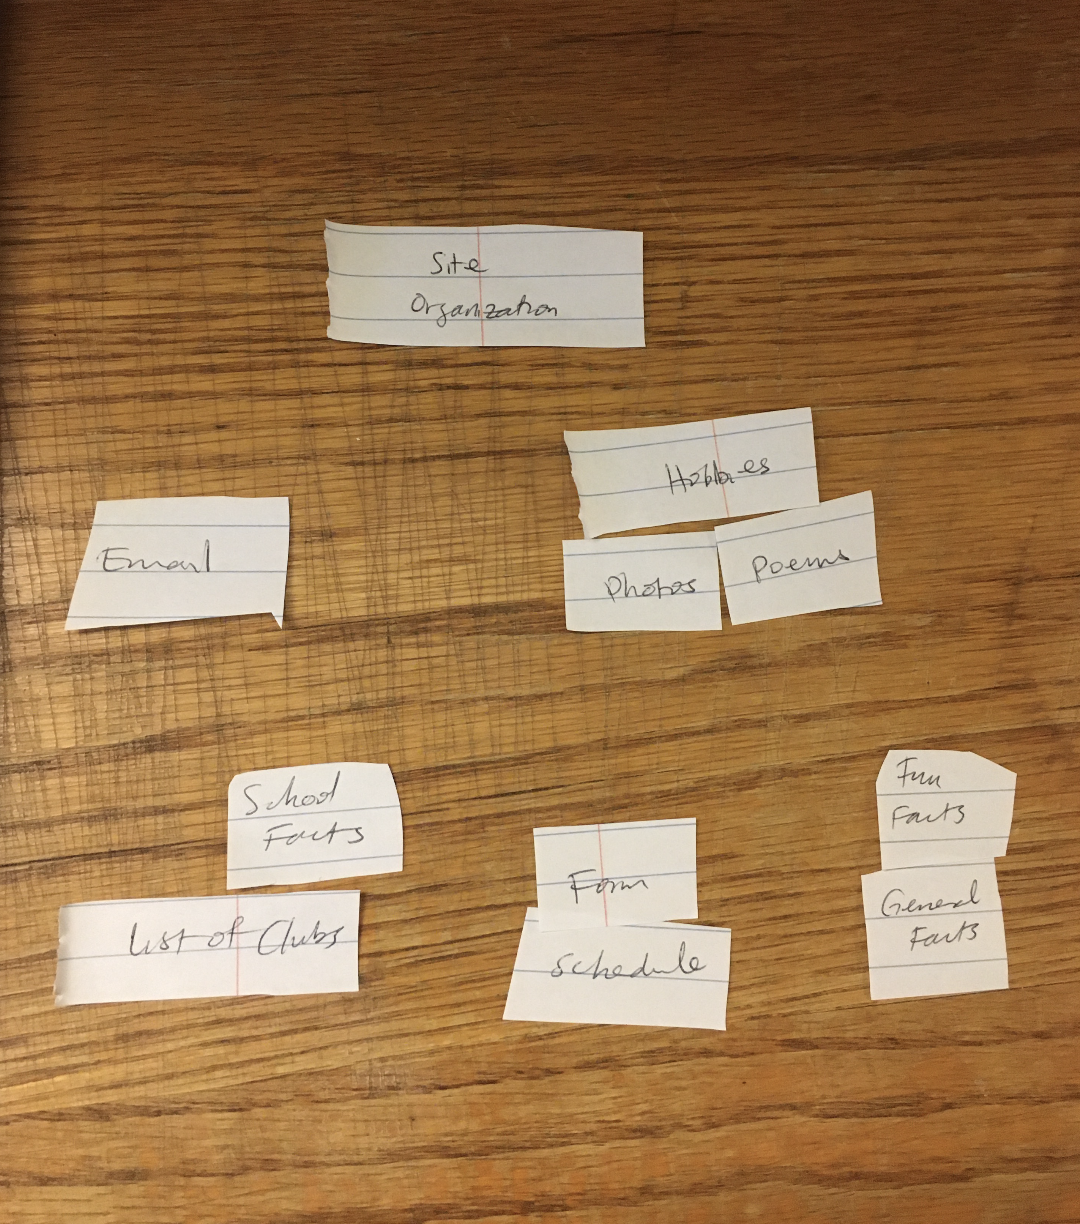 Site
Organization
Hobbies
Email
Photos
Poems
School
Facts
List of Clubs
Form
Schedule
Fun
Facts
General
Facts